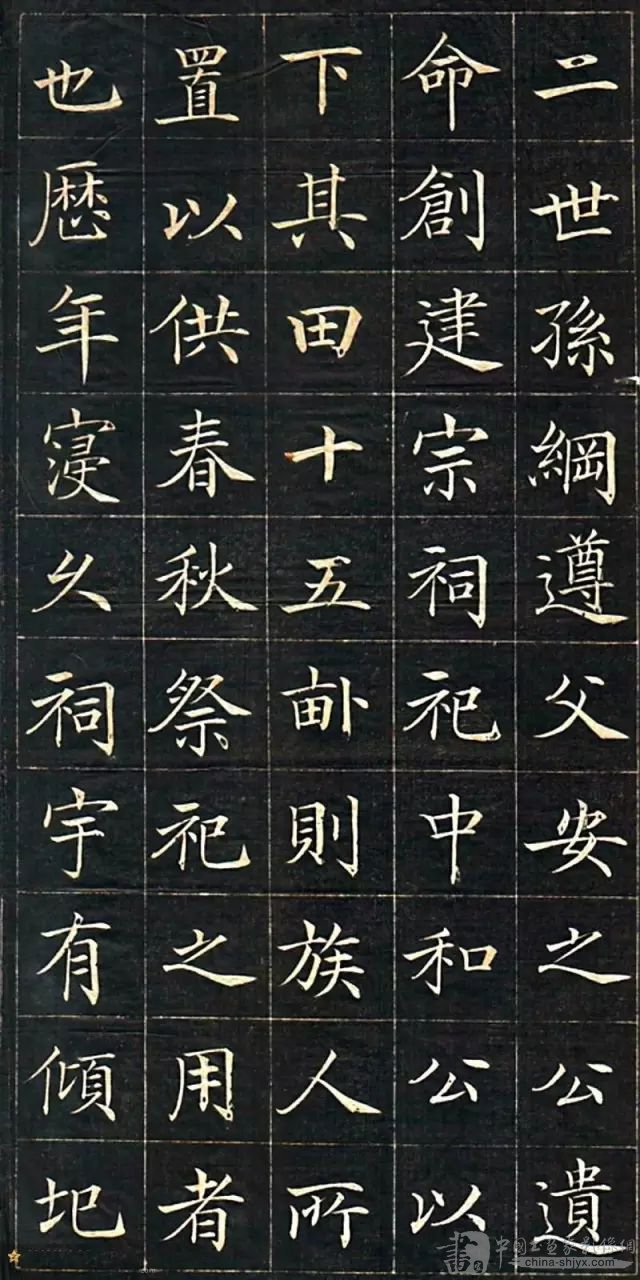 二世孫綱遵父安之公遺
命創建宗祠祀中和公以
下其田十五畝則族人所
置以供春秋祭祀之用者
也歷年寖久祠宇有傾圮
china-shjyx.com